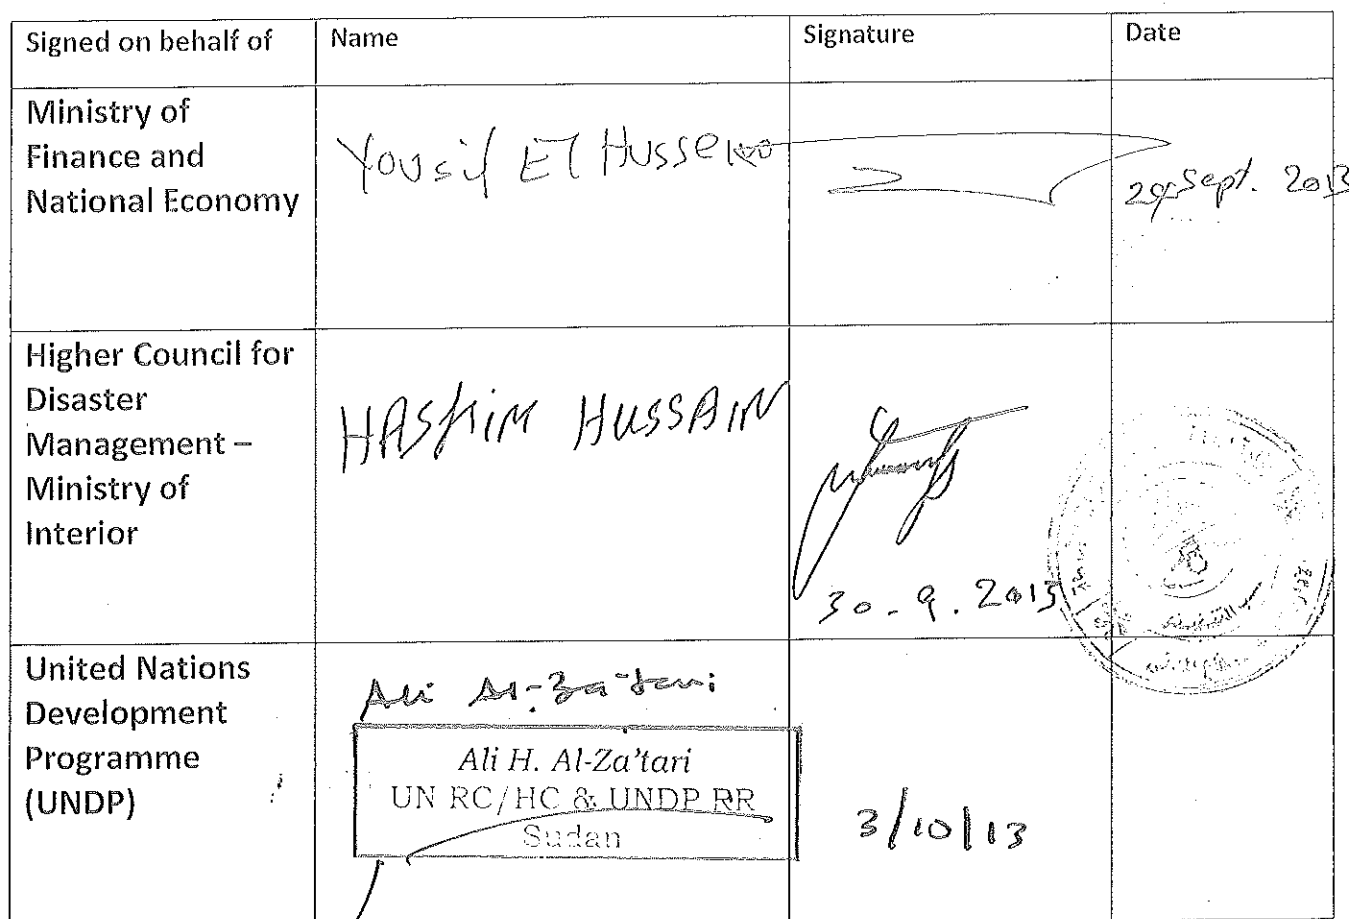 Signed on behalf of
Name
Signature
Date
Ministry of
Finance and
National Economy
Yousif El Hussein
Sept. 2013
Higher Council for
Disaster
Management –
Ministry of
Interior
HASHIM HUSSAIN
30-9.2013
United Nations
Development
Programme
(UNDP)
Ali Al-Za'tari
Ali H. Al-Za'tari
UN RC/HC & UNDP RR
Sudan
3/10/13